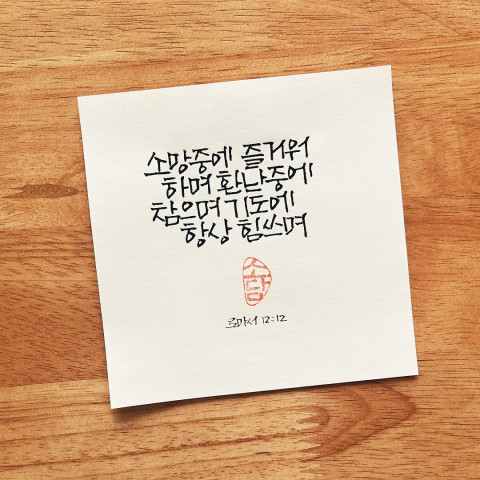 소망중에 즐거워
하며 환난중에
참으며 기도에
항상 힘쓰며
소담
로마서 12:12